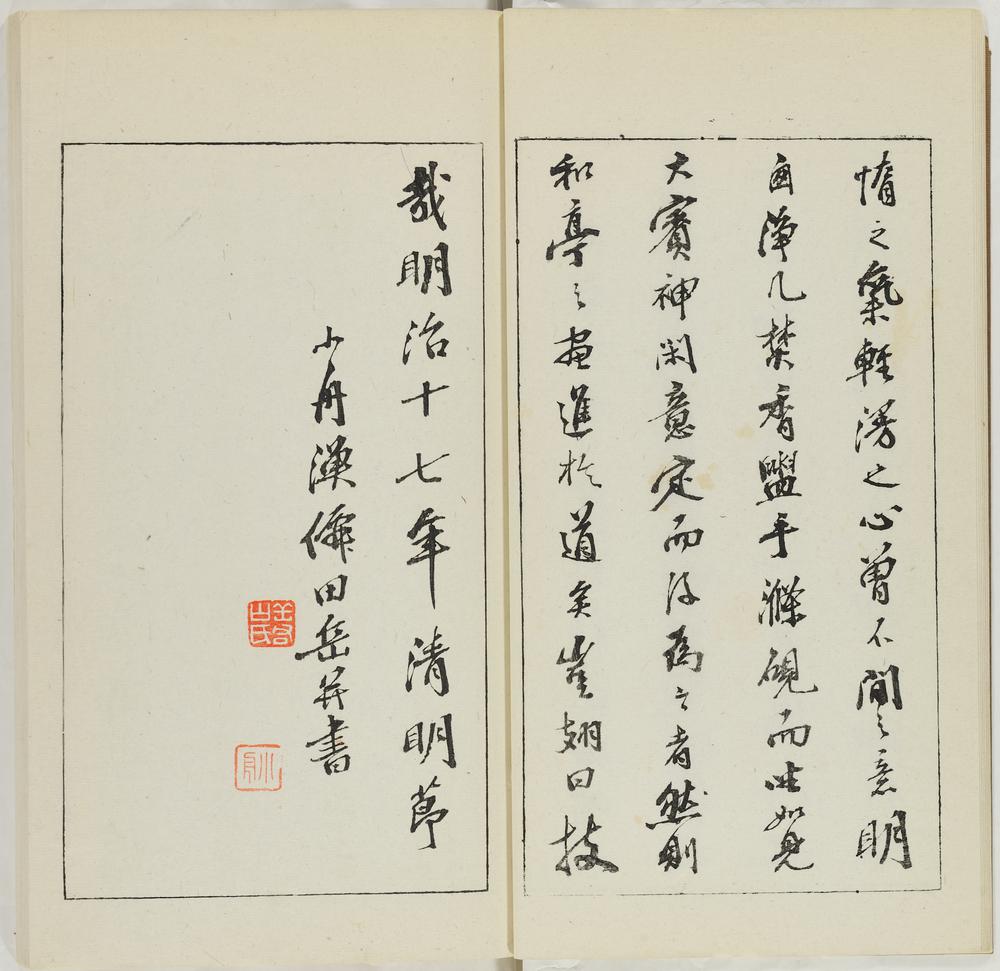 惰之氣輕漫之心曽不間之意明
囱浄几焚香盥手滌硯而坐如見
大賓神閑意定而後為之者然則
和亭之畫進於道矣豈翅曰技
哉明治十七年清明節
小舟漁田岳并書
小舟